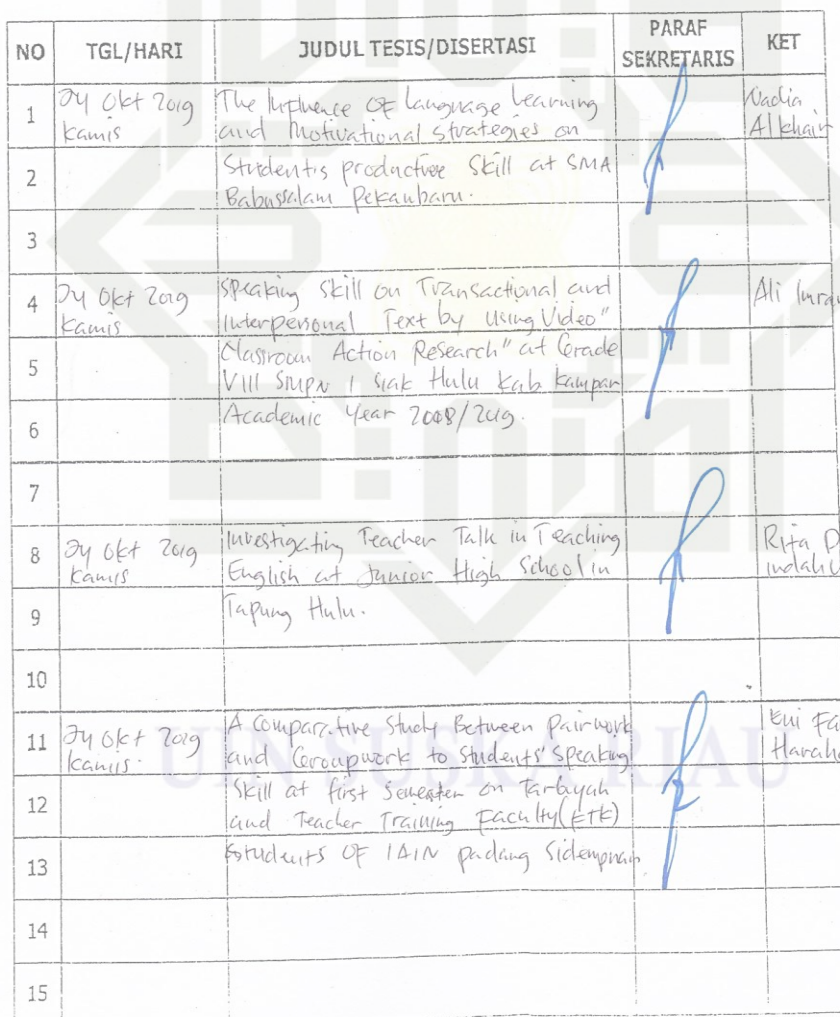 NO TGL/HARI JUDUL TESIS/DISERTASI PARAF SEKRETARIS KET
1 24 Okt 2019 The Influence OF Language Learning Nadia
Kamis and Motivational strategies on Alkhair
2 Students productive Skill at SMA
Babussalam Pekanbaru.
3
4 24 Okt 2019 Speaking Skill on Transactional and Ali Imra
Kamis Interpersonal Text by Using Video"
5 Classroom Action Research" at Grade
VIII SMPN 1 Siak Hulu Kab Kampar
6 Academic Year 2008/2019.
7
8 24 Okt 2019 Investigating Teacher Talk in Teaching Rita
Kamis English at Junior High School in indah
9 Tapung Hulu.
10
11 24 Okt 2019 A Comparative Study Between Pairwork Fa
Kamis. and Groupwork to Students' Speaking Haraha
12 Skill at first Semester on Tarbiyah
and Teacher Training Faculty (FTK)
13 Students OF IAIN padang Sidempuan
14
15
UIN SUSKA RIAU